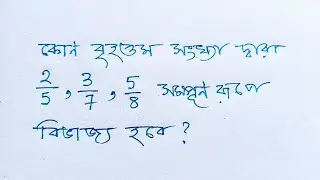 কোন বৃহত্তম সংখ্যা দ্বারা
2/5, 3/7, 5/8 সম্পূর্ন রূপে
বিভাজ্য হবে ?